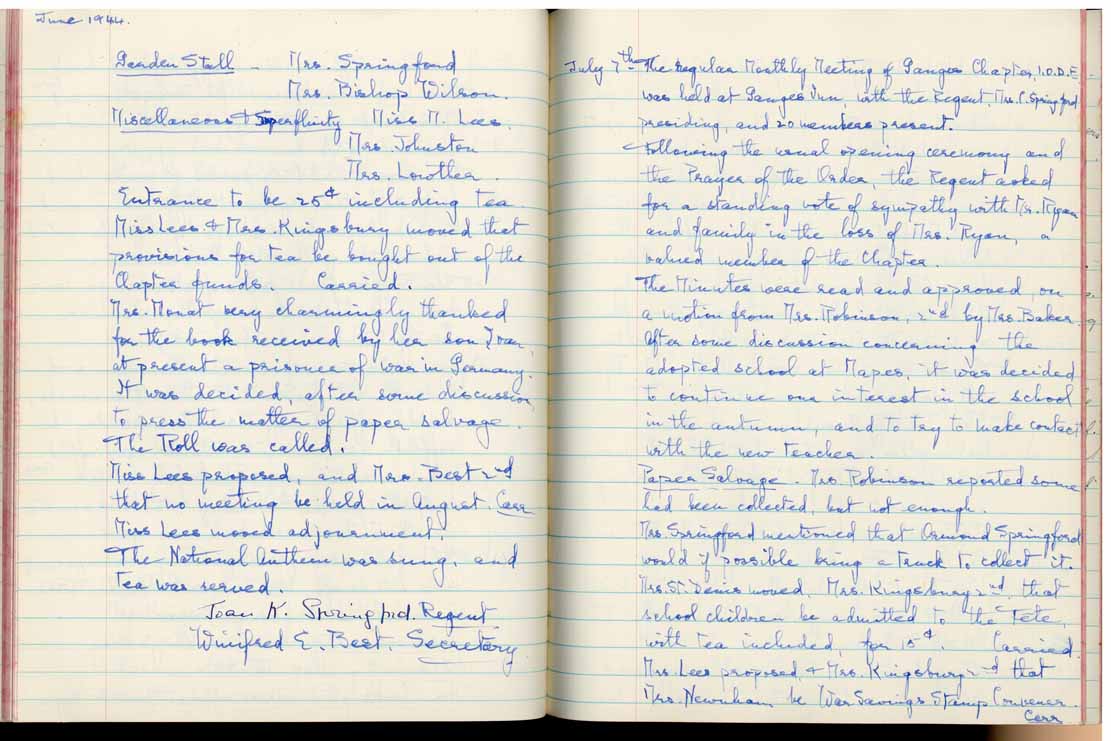 June 1944.
Garden Stall - Mrs. Springford
Mrs. Bishop Wilson.
Miscellaneous & Superfluity Miss M. Lees.
Mrs. Johnston
Mrs. Lowther.
Entrance to be 25¢ including Tea.
Miss Lees & Mrs. Kingsbury moved that
provisions for Tea be bought out of the
Chapter funds. Carried.
Mrs. Monat very charmingly thanked
for the book received by her son Ivan,
at present a prisoner of war in Germany.
It was decided, after some discussion
to press the matter of paper salvage.
The Roll was called.
Miss Lees proposed, and Mrs. Best 2nd
that no meeting be held in August. Carr
Miss Lees moved adjournment.
The National Anthem was sung, and
Tea was served.
Joan K. Springford. Regent
Winifred E. Best. Secretary
July 7th The regular Monthly Meeting of Ganges Chapter, I.O.D.E
was held at Ganges Inn, with the Regent, Mrs. C. Springford
presiding, and 20 members present.
Following the usual opening ceremony and
the Prayer of the Order, the Regent asked
for a standing vote of sympathy with Mr. Ryan
and family in the loss of Mrs. Ryan, a
valued member of the Chapter.
The Minutes were read and approved, on
a motion from Mrs. Robinson, 2nd by Mrs. Baker.
After some discussion concerning the
adopted school at Mapes, it was decided
to continue our interest in the school
in the autumn, and to try to make contact
with the new Teacher.
Paper Salvage. Mrs. Robinson reported some
had been collected, but not enough.
Mrs. Springford mentioned that Ormond Springford
would if possible bring a truck to collect it.
Mrs. St. Denis moved, Mrs. Kingsbury 2nd, that
school children be admitted to the Fete,
with Tea included, for 15¢. Carried.
Mrs. Lees proposed, & Mrs. Kingsbury 2nd that
Mrs. Newnham be War Savings Stamp Convener.
Carr